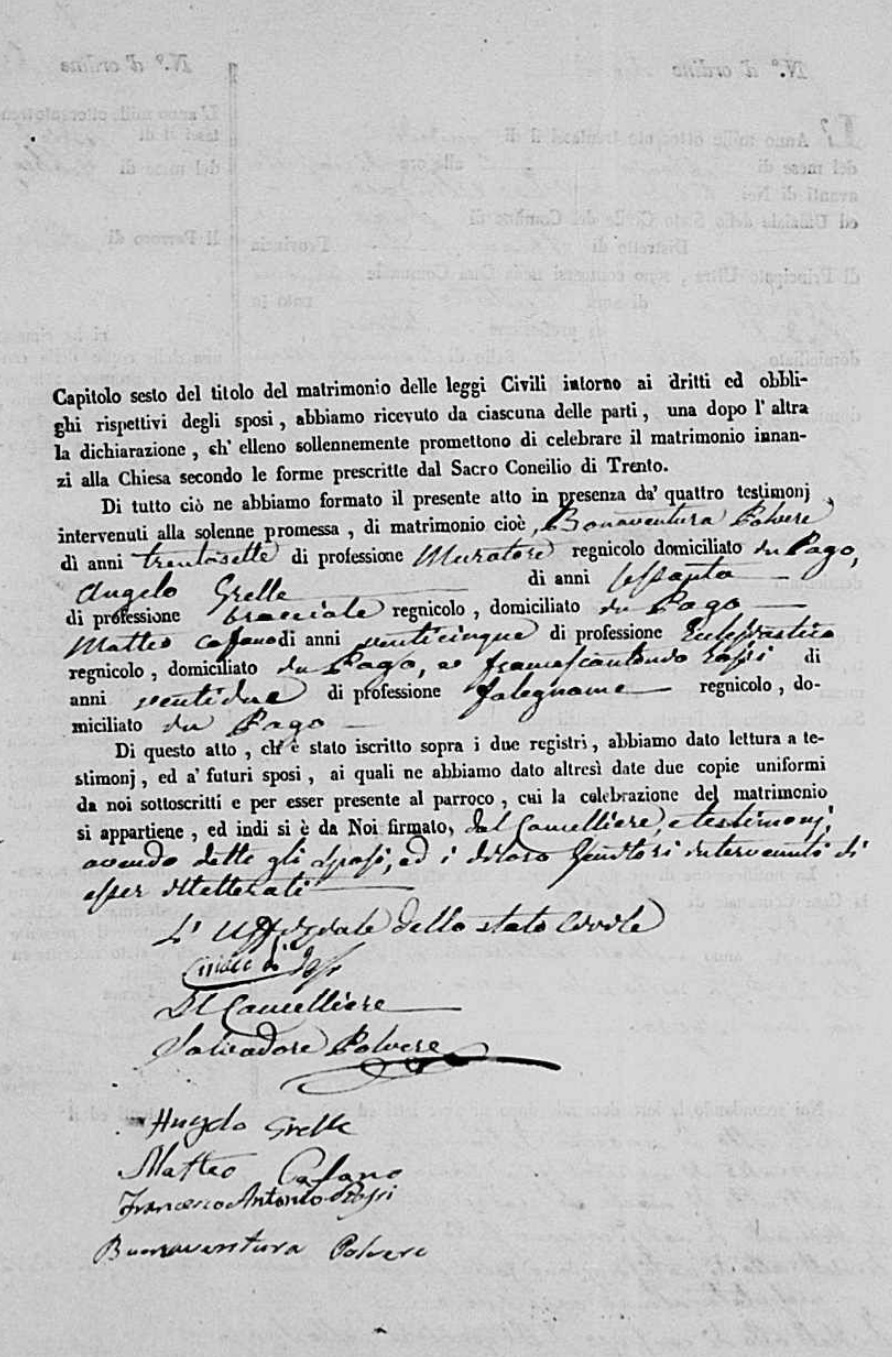 Capitolo sesto del titolo del matrimonio delle leggi Civili intorno ai dritti ed obbli-
ghi rispettivi degli sposi, abbiamo ricevuto da ciascuna delle parti, una dopo l' altra
la dichiarazione, ch' elleno sollennemente promettono di celebrare il matrimonio innan-
zi alla Chiesa secondo le forme prescritte dal Sacro Concilio di Trento.
Di tutto ciò ne abbiamo formato il presente atto in presenza da' quattro testimonj,
intervenuti alla solenne promessa, di matrimonio cioè, Bonaventura Polvere
di anni trentasette di professione Muratore regnicolo domiciliato in Pago,
Angelo Grelle di anni sessanta
di professione bracciale regnicolo, domiciliato in Pago
Matteo Cafano di anni venticinque di professione Eclesiastico
regnicolo, domiciliato in Pago, e Francescantonio Rossi di
anni ventidue di professione falegname regnicolo, do-
miciliato in Pago
Di questo atto, ch' è stato iscritto sopra i due registri, abbiamo dato lettura a te-
stimonj, ed a' futuri sposi, ai quali ne abbiamo dato altresì date due copie uniformi
da noi sottoscritti e per esser presente al parroco, cui la celebrazione del matrimonio
si appartiene, ed indi si è da Noi firmato, dal Cancelliere, e testimonj,
avendo dette gli sposi, ed i di loro Genitori intervenuti di
esser illetterati
L' Uffiziale dello stato Civile
Il Cancelliere
Salvadore Polvere
Angelo Grelle
Matteo Cafano
Francesco Antonio Rossi
Buonaventura Polvere